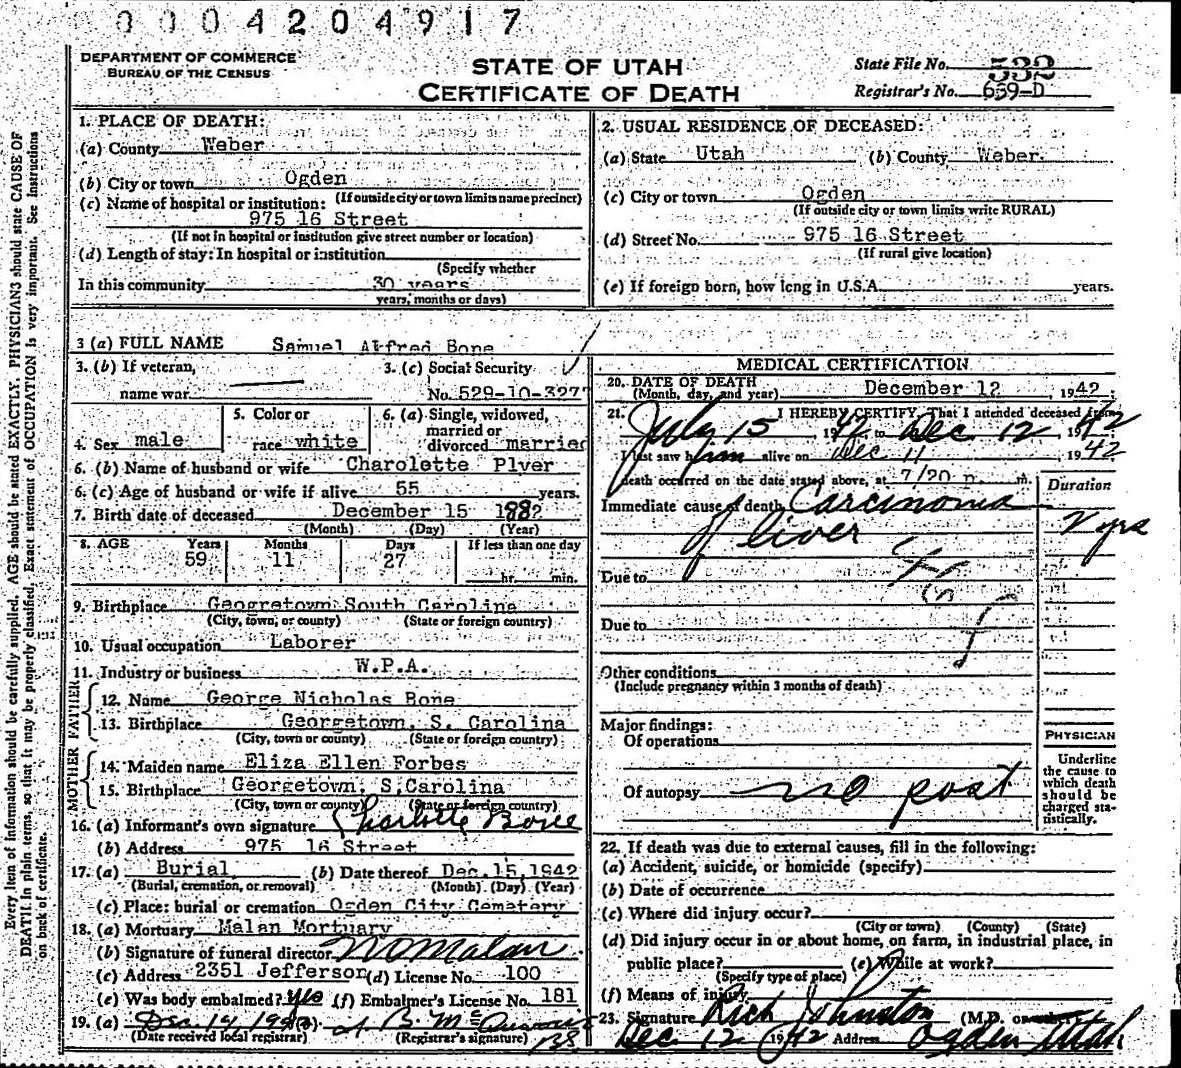 0004204917
DEPARTMENT OF COMMERCE
BUREAU OF THE CENSUS
STATE OF UTAH
CERTIFICATE OF DEATH
State File No. 532
Registrar's No. 659-D
1. PLACE OF DEATH:
(a) County Weber
(b) City or town Ogden
(If outside city or town limits name precinct)
(c) Name of hospital or institution:
975 16 Street
(If not in hospital or institution give street number or location)
(d) Length of stay: In hospital or institution
(Specify whether
In this community 30 years
years, months or days)
2. USUAL RESIDENCE OF DECEASED:
(a) State Utah (b) County Weber
(c) City or town Ogden
(If outside city or town limits write RURAL)
(d) Street No. 975 16 Street
(If rural give location)
(e) If foreign born, how long in U.S.A. years.
3 (a) FULL NAME Samuel Alfred Bone
3. (b) If veteran,
name war
3. (c) Social Security
No. 529-10-3277
4. Sex male
5. Color or
race white
6. (a) Single, widowed,
married or
divorced married
6. (b) Name of husband or wife Charolette Plyer
6. (c) Age of husband or wife if alive 55 years.
7. Birth date of deceased December 15 1882
(Month) (Day) (Year)
8. AGE Years Months Days If less than one day
59 11 27
hr. min.
9. Birthplace Geogretown South Carolina
(City, town, or county) (State or foreign country)
10. Usual occupation Laborer
11. Industry or business W.P.A.
FATHER
12. Name George Nicholas Bone
13. Birthplace Georgetown, S. Carolina
(City, town or county) (State or foreign country)
MOTHER
14. Maiden name Eliza Ellen Forbes
15. Birthplace Georgetown, S,Carolina
(City, town or county) (State or foreign country)
16. (a) Informant's own signature Charlotte Bone
(b) Address 975 16 Street
17. (a) Burial (b) Date thereof Dec.15,1942
(Burial, cremation, or removal) (Month) (Day) (Year)
(c) Place: burial or cremation Ogden City Cemetery
18. (a) Mortuary Malan Mortuary
(b) Signature of funeral director Malan
(c) Address 2351 Jefferson (d) License No. 100
(e) Was body embalmed? Yes (f) Embalmer's License No. 181
19. (a) Dec. 14, 19
(Date received local registrar) (Registrar's signature)
MEDICAL CERTIFICATION
20. DATE OF DEATH
(Month, day, and year) December 12, 1942
21. I HEREBY CERTIFY, That I attended deceased from
July 15, 1942, to Dec 12, 1942
I last saw him alive on Dec 11 1942
death occurred on the date stated above, at 7/20 p. m.
Duration
Immediate cause of death Carcinoma
of liver
2 yrs
Due to
Due to
Other conditions
(Include pregnancy within 3 months of death)
Major findings:
Of operations
Of autopsy no post
PHYSICIAN
Underline
the cause to
which death
should be
charged sta-
tistically.
22. If death was due to external causes, fill in the following:
(a) Accident, suicide, or homicide (specify)
(b) Date of occurrence
(c) Where did injury occur?
(City or town) (County) (State)
(d) Did injury occur in or about home, on farm, in industrial place, in
public place? (e) While at work?
(Specify type of place)
(f) Means of injury
23. Signature Rich Johnston (M.D. or
Dec 12 1942 Address Ogden Utah
Every item of information should be carefully supplied. AGE should be stated EXACTLY. PHYSICIANS should state CAUSE OF
DEATH in plain terms, so that it may be properly classified. Exact statement of OCCUPATION is very important. See instructions
on back of certificate.